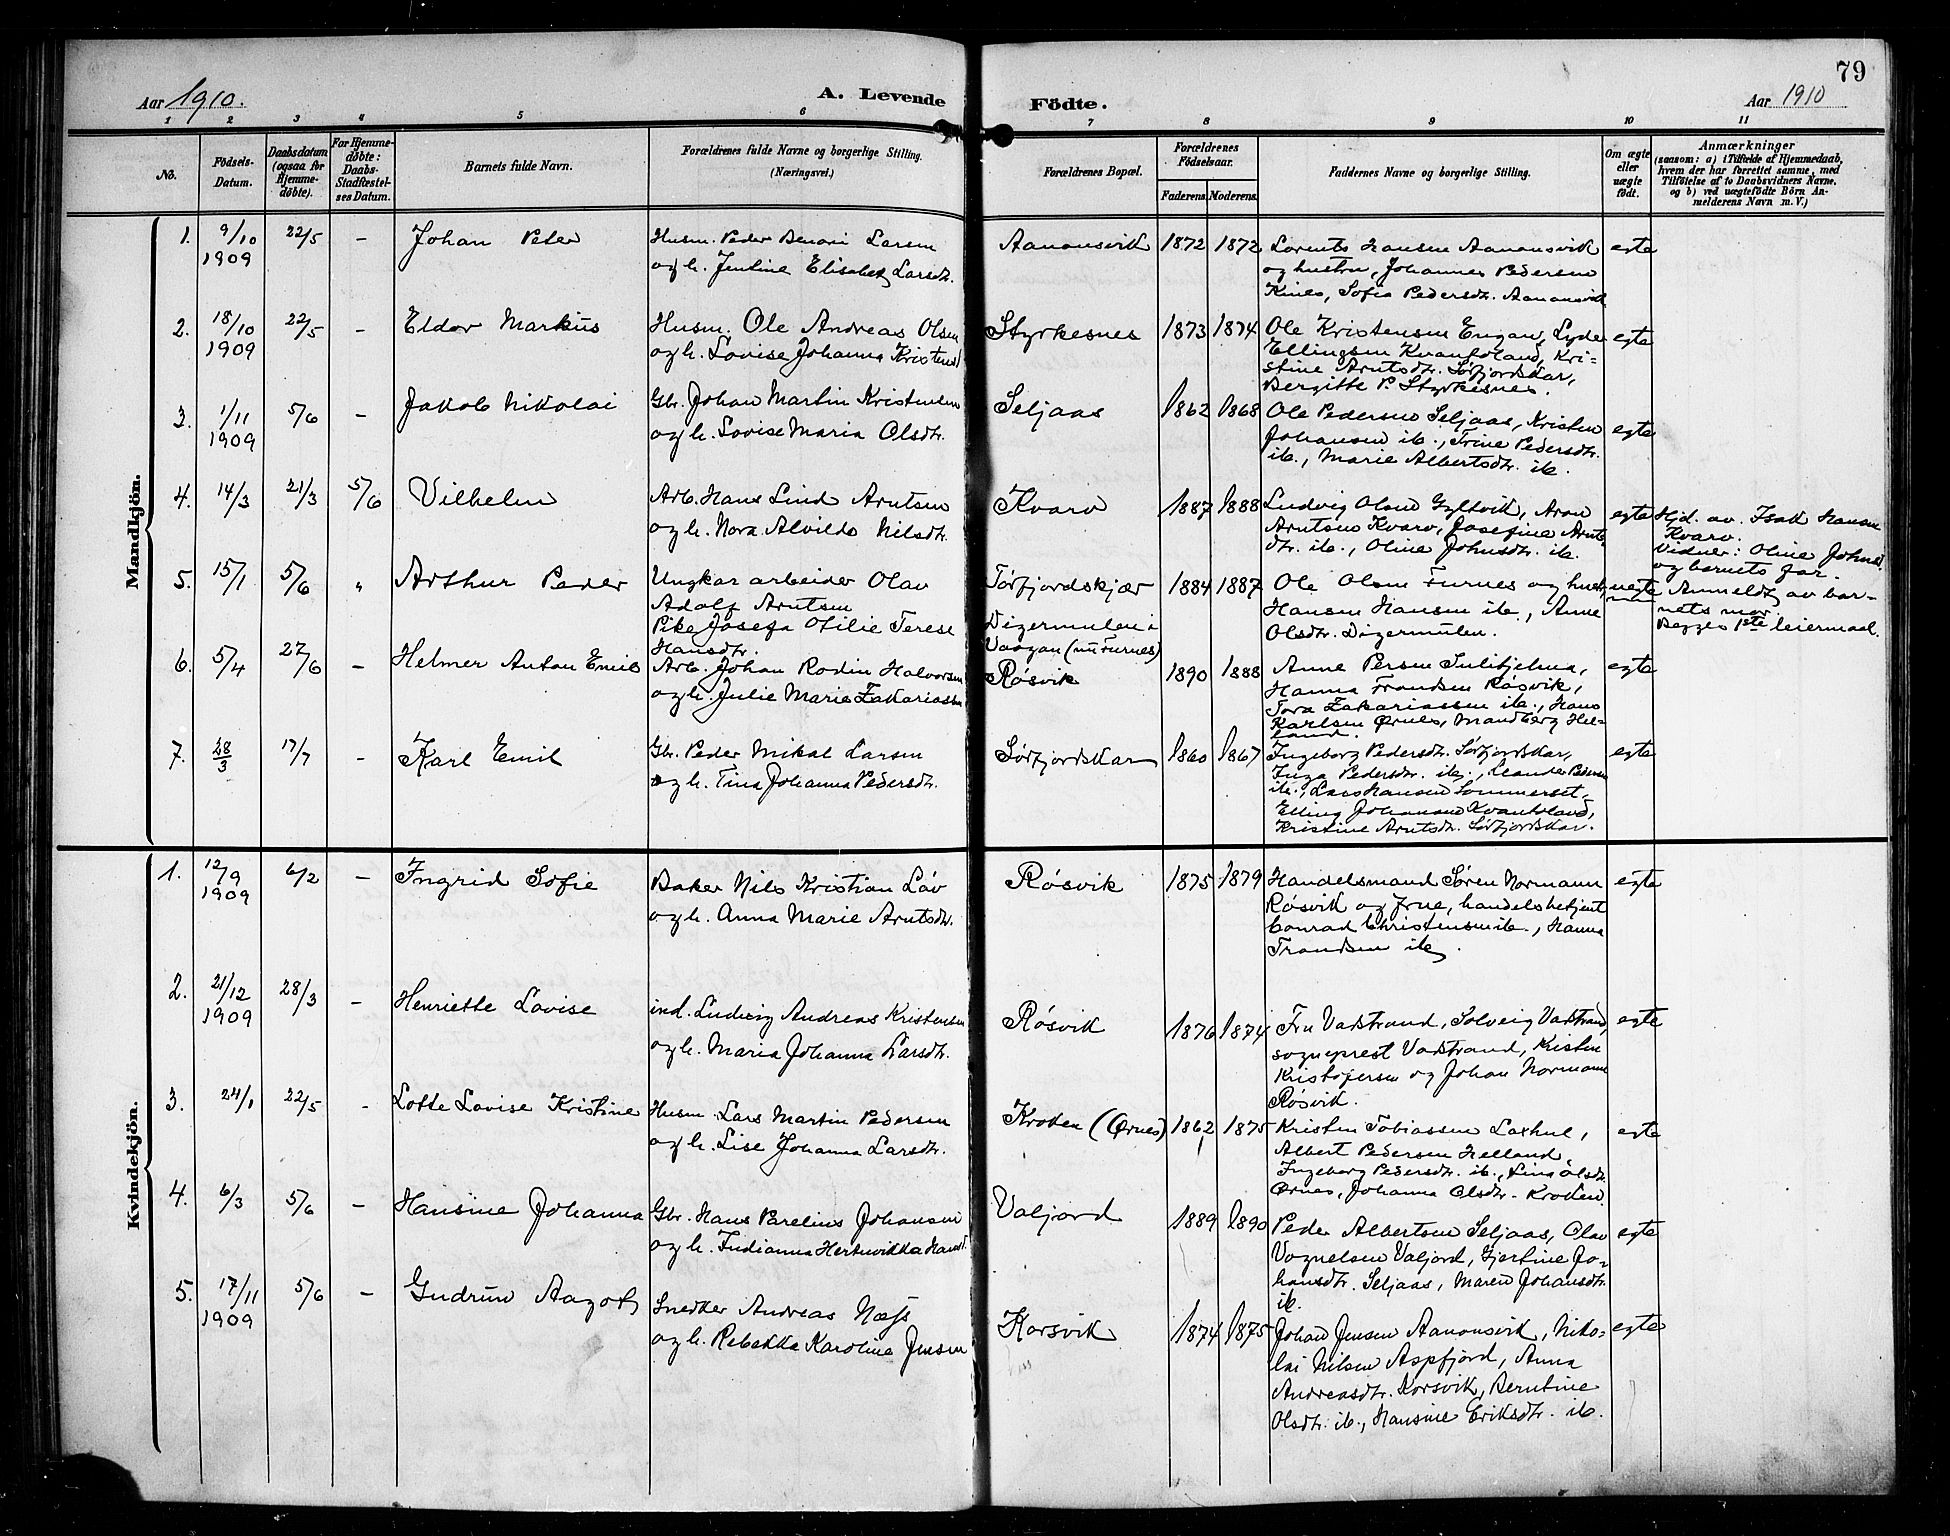 79
Aar 1910.
A. Levende
Födte.
Aar 1910
1 2 3 4 5 6 7 8 9 10 11
No.
Födsels-
Datum.
Daabsdatum
(ogsaa for
Hjemme-
döbte).
For Hjemme-
döbte:
Daabs-
Stadfæstel-
ses Datum.
Barnets fulde Navn.
Forældrenes fulde Navne og borgerlige Stilling.
(Næringsvei.)
Forældrenes Bopæl.
Forældrenes
Födselsaar.
Faderens. Moderens.
Faddernes Navne og borgerlige Stilling.
Om ægte
eller
uægte
födt.
Anmærkninger
(saasom: a) i Tilfælde af Hjemmedaab,
hvem der har forrettet samme, med
Tilföielse af to Daabsvidners Navne,
og b) ved uægtefödte Börn An-
melderens Navn m. V.)
Mandkjön.
1. 9/10 1909 22/5 – Johan Peder
Husm. Peder Benoni Larsen
og h. Jentine Elisabet Larsdtr.
Aanonsvik 1872 1872
Lorents Hansen Aanonsvik
og hustru, Johannes Pedersen
Kines, Sofie Pedersdtr. Aanonsvik
egte
2. 18/10 1909 22/5 – Eldor Markus
Husm. Ole Andreas Olsen
og h. Lovise Johanna Kristensd
Styrkesnes 1873 1874
Ole Kristensen Engan, Lyder
Ellingsen Kvanfoland, Kri-
stine Arntsdtr. Sørfjordskar,
Bergitte P. Styrkesnes.
egte
3. 1/11 1909 5/6 – Jakob Nikolai
Gbr. Johan Martin Kristensen
og h. Lovise Maria Olsdtr.
Seljaas 1862 1868
Ole Pedersen Seljaas, Kristen
Johansen ib., Trine Pedersdtr.
ib., Marie Albertsdtr. ib.
egte
4. 14/3 21/3 5/6 Vilhelm
Arb. Hans Lind Arntsen
og h. Nora Alvilde Nilsdtr.
Kvarv 1887 1888
Ludvig Olsen Gyltvik, Aron
Arntsen Kvarv, Josefine Arnts-
dtr. ib., Oline Johnsdtr. ib.
egte
Hjd. av. Isak Hansen
Kvarv.
Vidner: Oline Johnsd.
og barnets far.
5. 15/1 5/6 " Arthur Peder
Ungkar arbeider Olav
Adolf Arntsen
Pike Josefa Otilie Terese
Hansdtr.
Tørfjordskjær
Digermulen i
Vaagan (nu Furnes)
1884 1887
Ole Olsen Furnes og hustr.,
Hansen Hansen ib., Anne
Olsdtr. Digermulen.
uegte
Anmeldt av bar-
nets mor.
Begges 1ste leiermaal.
6. 5/4 27/6 – Helmer Anton Emil
Arb. Johan Rodin Halvorsen
og h. Julie Marie Zakariassen
Røsvik 1890 1888
Anne Persen Sulitjelma,
Hanna Trondsen Røsvik,
Tora Zakariassen ib., Hans
Karlsen Ørnes, Mandberg Hel-
land.
egte
7. 28/3 17/7 – Karl Emil
Gbr. Peder Mikal Larsen
og h. Tina Johanna Pedersdtr.
Sørfjordskar 1860 1867
Ingeborg Pedersdtr. Sørfjordskar,
Inga Pedersdtr. ib., Leander Pedersen
ib., Lars Hansen Sommerset,
Elling Johansen Kvanfoland,
Kristine Arntsdtr. Sørfjordskar.
egte
Kvindekjön.
1. 12/9 1909 6/2 – Ingrid Sofie
Baker Nils Kristian Løv
og h. Anna Marie Arntsdtr.
Røsvik 1875 1879
Handelsmand Søren Normann
Røsvik og frue, handelsbetjent
Conrad Christensen ib., Hanna
Trondsen ib.
egte
2. 21/12 1909 28/3 – Henriette Lovise
ind. Ludvig Andreas Kristensen
og h. Maria Johanna Larsdtr.
Røsvik 1876 1874
Fru Vadstrand, Solveig Vadstrand,
sogneprest Vadstrand, Kristen
Kristofersen og Johan Normann
Røsvik.
egte
3. 24/1 22/5 – Lotte Lovise Kristine
Husm. Lars Martin Pedersen
og h. Lise Johanna Larsdtr.
Kroken (Ørnes) 1862 1875
Kristen Tobiassen Laxhul,
Albert Pedersen Helland,
Ingeborg Pedersdtr. ib., Lina Olsdtr.
Ørnes, Johanna Olsdtr. Kroken
egte
4. 6/3 5/6 – Hansine Johanna
Gbr. Hans Parelius Johansen
og h. Indianna Hertnvikka Hansd.
Valjord 1889 1890
Peder Albertsen Seljaas, Olav
Vognelsen Valjord, Gjertine Jo-
hansdtr. Seljaas, Maren Johansdtr.
ib.
egte
5. 17/11 1909 5/6 – Gudrun Aagot
Snedker Andreas Næss
og h. Rebekka Karoline Jensen
Korsvik 1874 1875
Johan Jensen Aanonsvik, Niko-
lai Nilsen Aspfjord, Anna
Andreasdtr. Korsvik, Berntine
Olsdtr. ib., Hansine Eriksdtr. ib.
egte